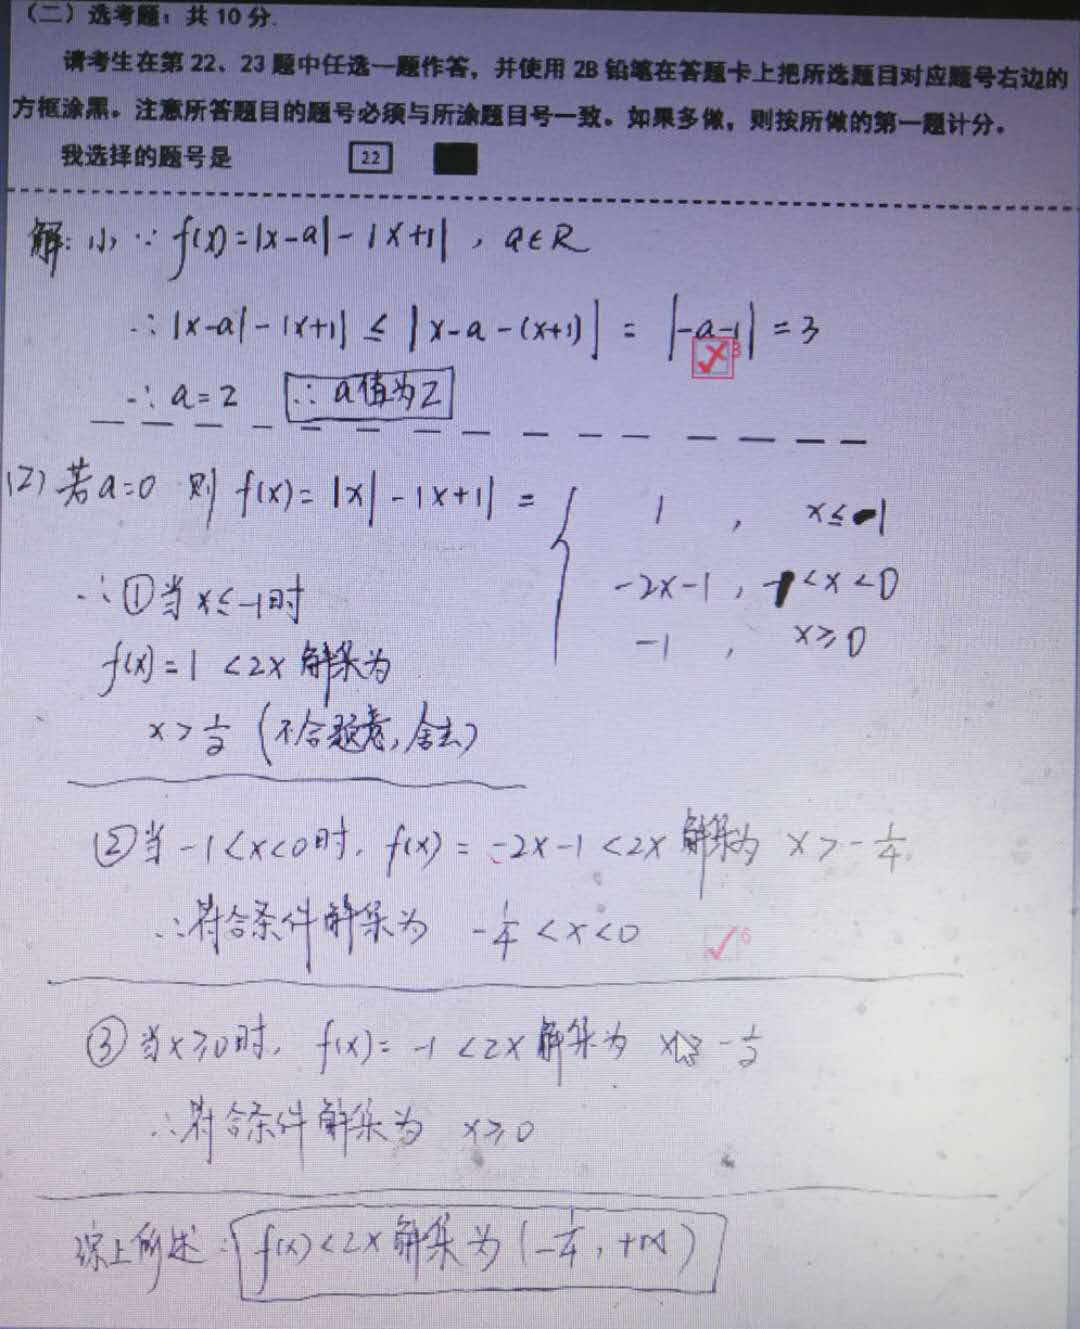 （二）选考题：共 10 分.
请考生在第 22、23 题中任选一题作答，并使用 2B 铅笔在答题卡上把所选题目对应题号右边的
方框涂黑。注意所答题目的题号必须与所涂题目号一致。如果多做，则按所做的第一题计分。
我选择的题号是 22
解: (1) ∵ f(x)=|x-a|-|x+1| , a∈R
∴ |x-a|-|x+1| ≤ |x-a-(x+1)| = |-a-1| = 3
3
∴ a=2 ∴ a值为2
(2) 若a=0 则 f(x)=|x|-|x+1| = { 1 , x≤-1
-2x-1 , -1<x<0
-1 , x≥0
∴ ①当 x≤-1时
f(x)=1 <2x 解集为
x>1/2 (不合题意,舍去)
②当 -1<x<0时, f(x) = -2x-1 <2x 解集为 x>-1/4.
∴符合条件解集为 -1/4 <x<0
6
③当x≥0时, f(x)= -1 <2x 解集为 x> -1/2
∴符合条件解集为 x≥0
综上所述: f(x)<2x 解集为 (-1/4, +∞)